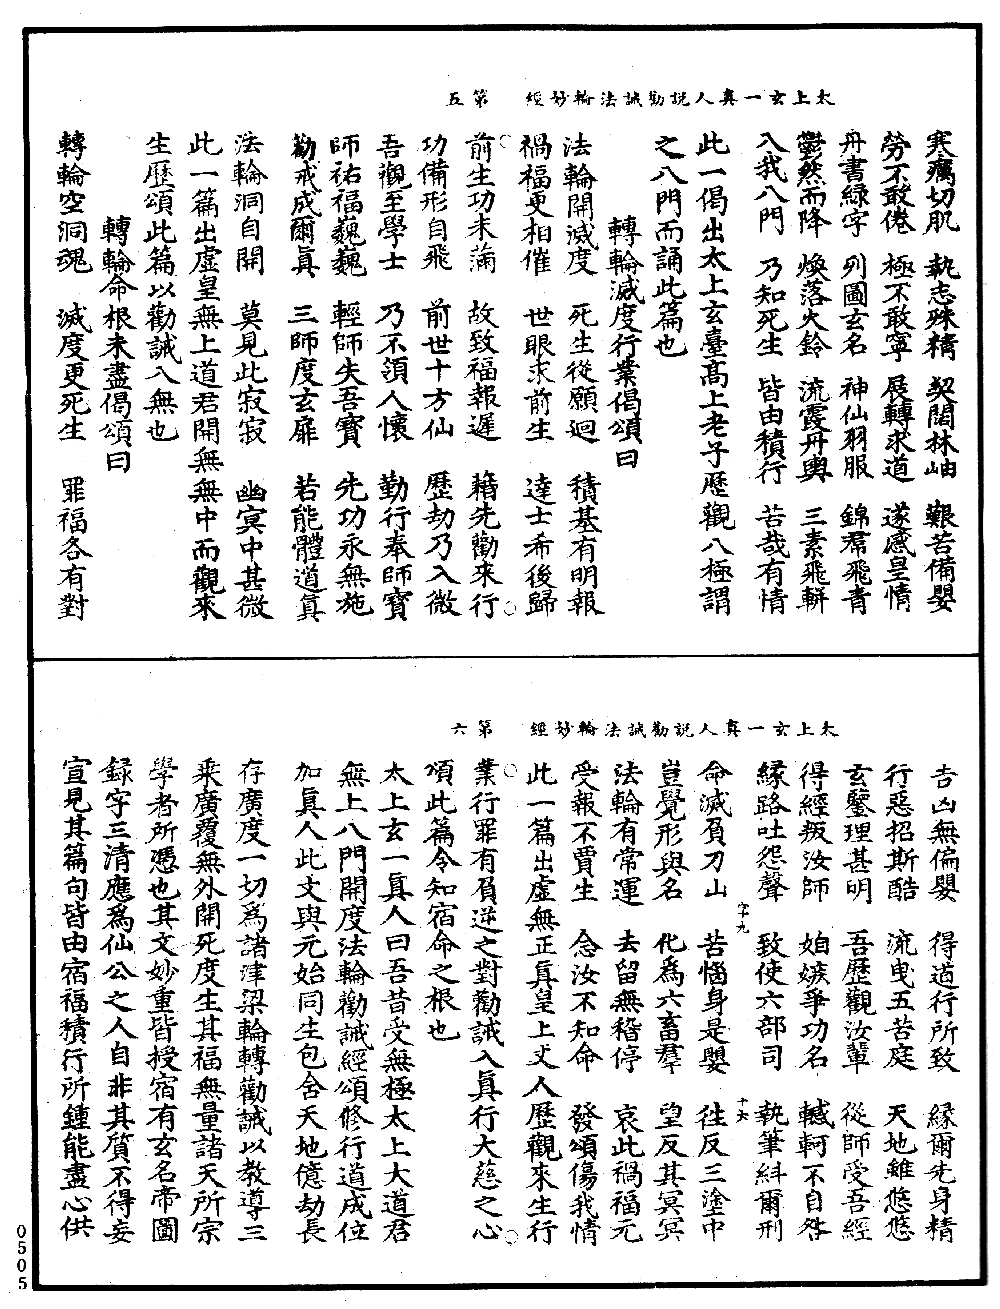 太上玄一真人說勸誡法輪妙經　第五
寒癘切肌　執志殊精　契闊林岫　艱苦備嬰
勞不敢倦　極不敢寧　展轉求道　遂感皇情
丹書綠字　列圖玄名　神仙羽服　錦帬飛青
鬱然而降　煥落火鈴　流霞丹輿　三素飛軿
入我八門　乃知死生　皆由積行　苦哉有情
此一偈出太上玄臺高上老子歷觀八極謂
之八門而誦此篇也
轉輪滅度行業偈頌曰
法輪開滅度　死生從願迴　積基有明報
禍福更相催　世眼求前生　達士希後歸
前生功未滿　故致福報遲　藉先勸來行
功備形自飛　前世十方仙　歷劫乃入微
吾觀至學士　乃不須人懷　勤行奉師寶
師祐福巍巍　輕師失吾寶　先功永無施
勸戒成爾真　三師度玄扉　若能體道真
法輪洞自開　莫見此寂寂　幽冥中甚微
此一篇出虛皇無上道君開無無中而觀來
生歷頌此篇以勸誡入無也
轉輪命根未盡偈頌曰
轉輪空洞魂　滅度更死生　罪福各有對
太上玄一真人說勸誡法輪妙經　第六
吉凶無偏嬰　得道行所致　緣爾先身精
行惡招斯酷　流曳五苦庭　天地雖悠悠
玄鑒理甚明　吾歷觀汝輩　從師受吾經
得經叛汝師　妲嫉爭功名　轗軻不自咎
緣路吐怨聲　致使六部司　執筆糾爾刑
字十九　十六
命滅負刀山　苦惱身是嬰　往反三塗中
豈覺形與名　化為六畜羣　望反其冥冥
法輪有常運　去留無稽停　哀此禍福元
受報不賈生　念汝不知命　發頌傷我情
此一篇出虛無正真皇上丈人歷觀來生行
業行罪有負逆之對勸誡入真行大慈之心
頌此篇令知宿命之根也
太上玄一真人曰吾昔受無極太上大道君
無上八門開度法輪勸誡經頌修行道成位
加真人此文與元始同生包含天地億劫長
存廣度一切為諸津梁輪轉勸誡以教導三
乘廣覆無外開死度生其福無量諸天所宗
學者所憑也其文妙重皆授宿有玄名帝圖
錄字三清應為仙公之人自非其質不得妄
宣見其篇句皆由宿福積行所鍾能盡心供
0505